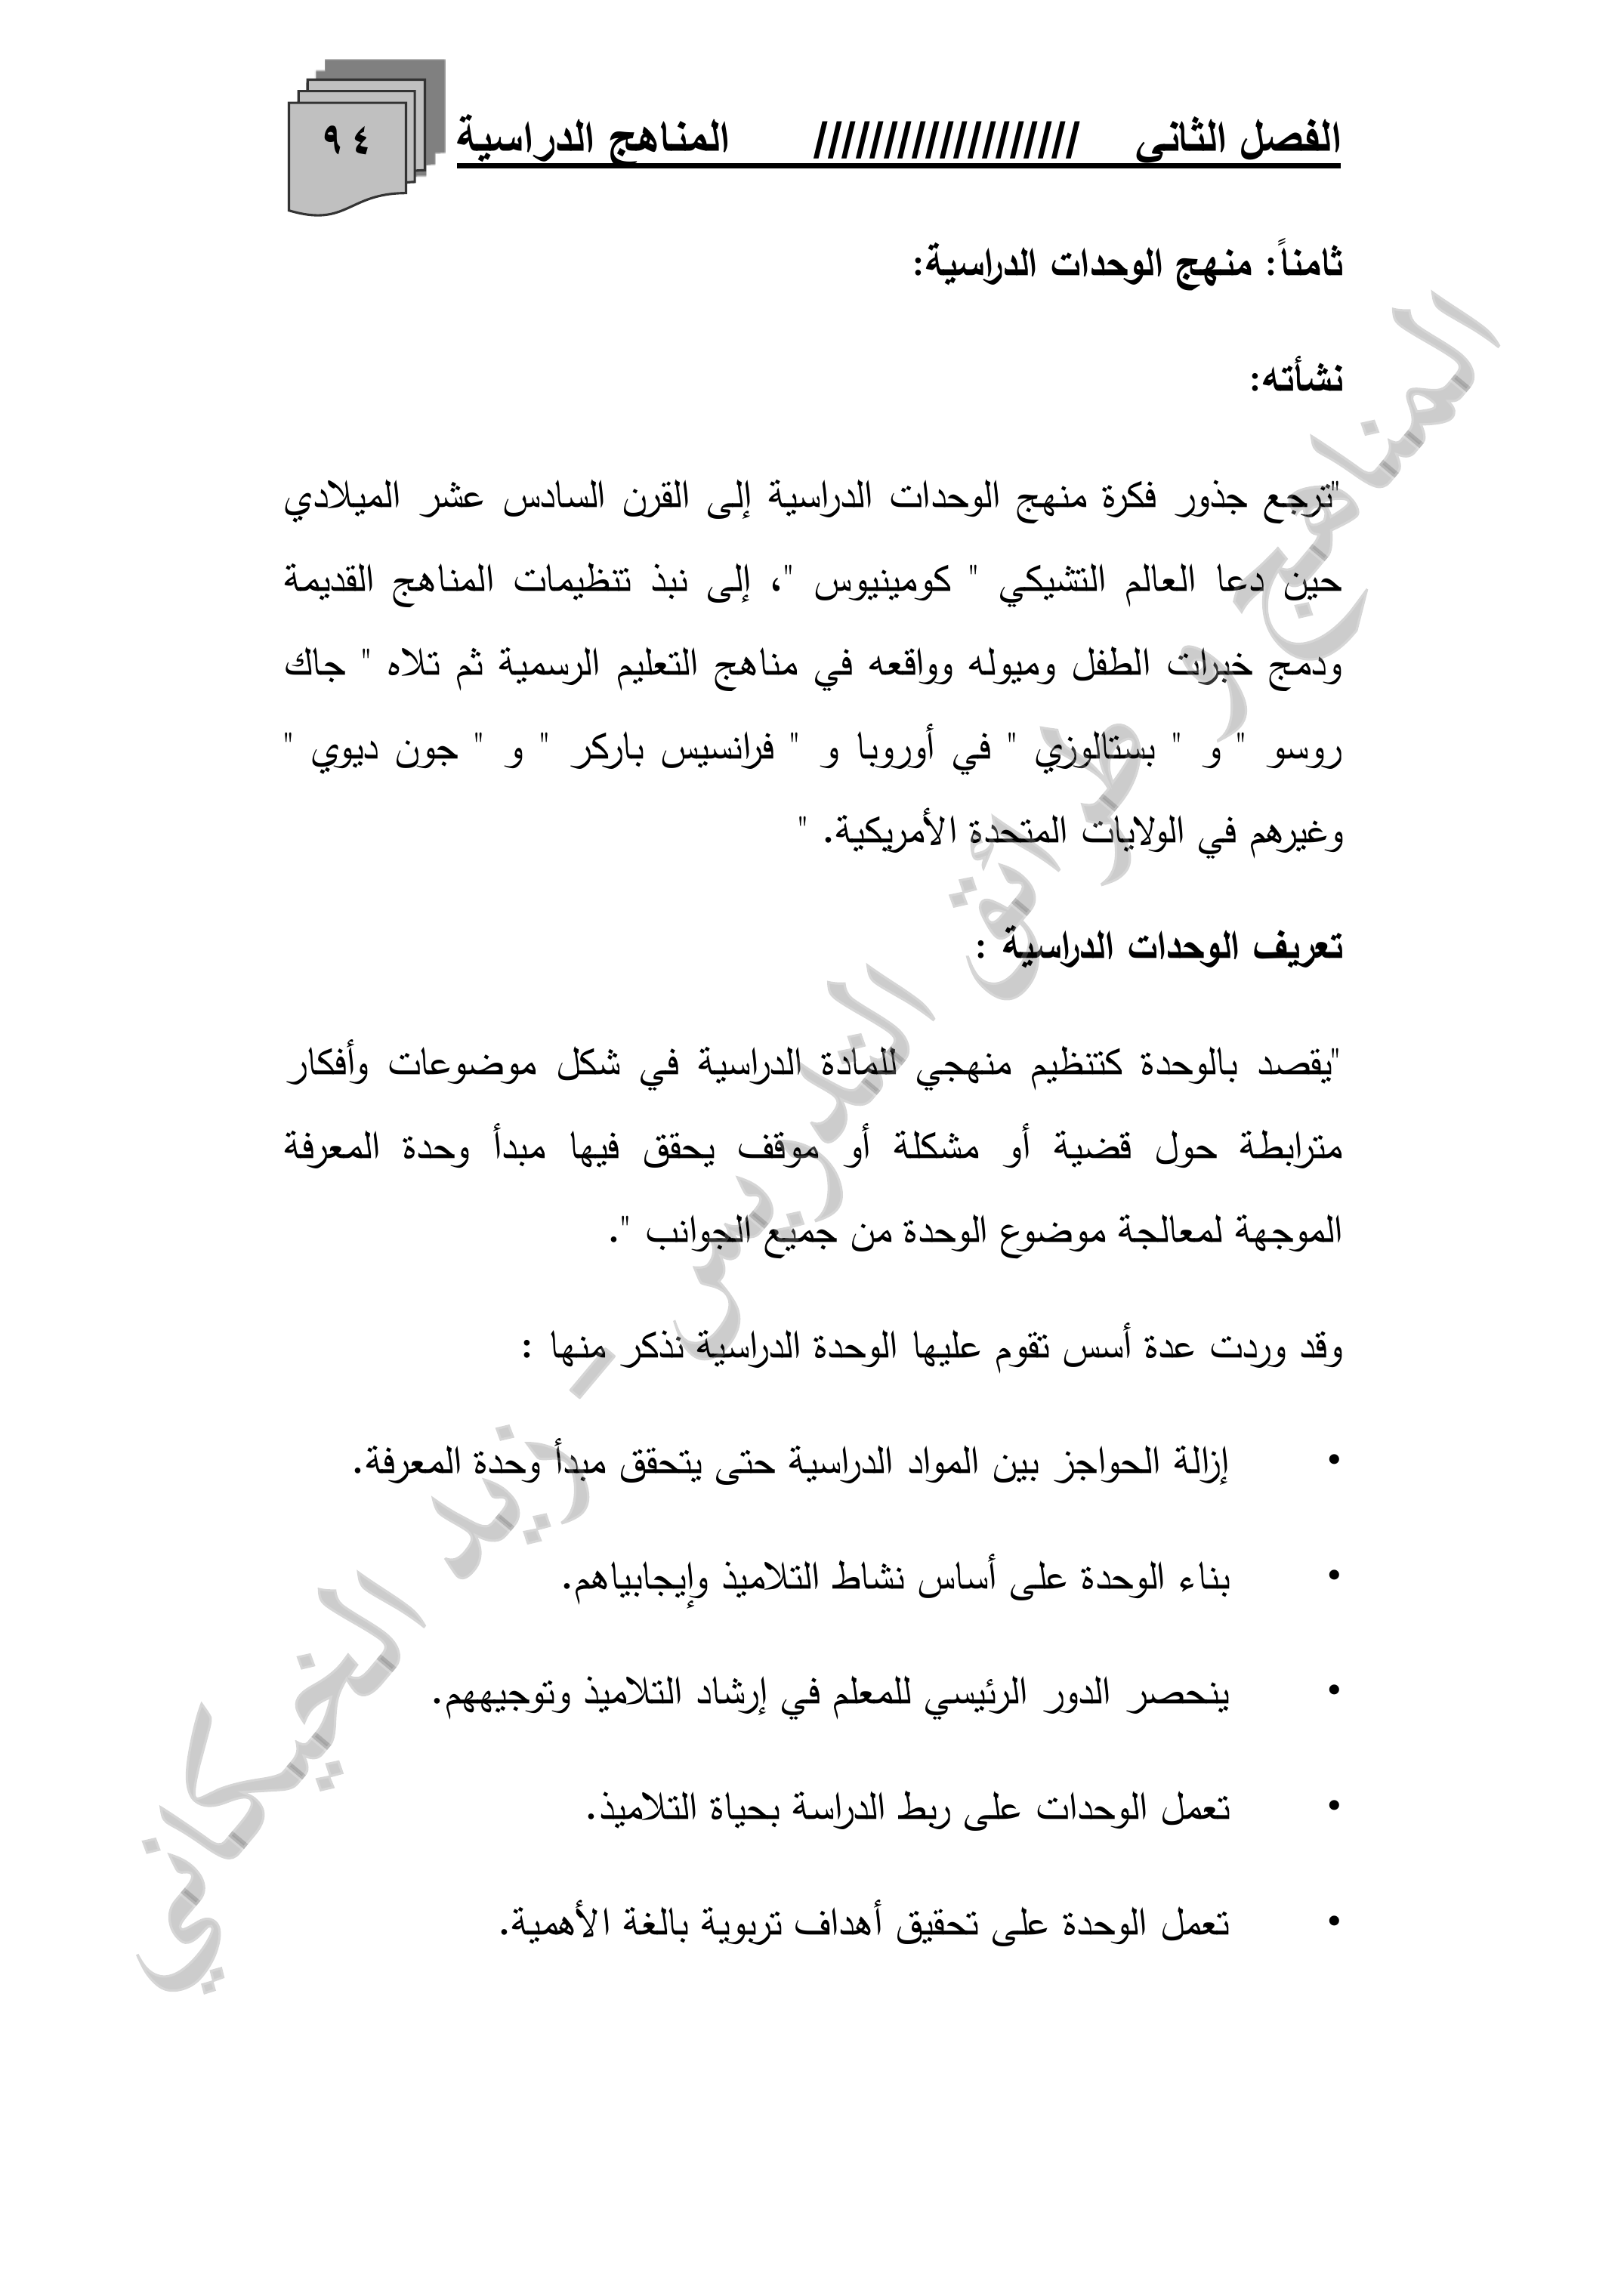 الفصل الثاني /////////////////// المناهج الدراسية ٩٤
ثامناً: منهج الوحدات الدراسية:
نشأته:
"ترجع جذور فكرة منهج الوحدات الدراسية إلى القرن السادس عشر الميلادي
حين دعا العالم التشيكي " كومينيوس "، إلى نبذ تنظيمات المناهج القديمة
ودمج خبرات الطفل وميوله وواقعه في مناهج التعليم الرسمية ثم تلاه " جاك
روسو " و " بستالوزي " في أوروبا و " فرانسيس باركر " و " جون ديوي "
وغيرهم في الولايات المتحدة الأمريكية. "
تعريف الوحدات الدراسية :
"يقصد بالوحدة كتنظيم منهجي للمادة الدراسية في شكل موضوعات وأفكار
مترابطة حول قضية أو مشكلة أو موقف يحقق فيها مبدأ وحدة المعرفة
الموجهة لمعالجة موضوع الوحدة من جميع الجوانب ".
وقد وردت عدة أسس تقوم عليها الوحدة الدراسية نذكر منها :
• إزالة الحواجز بين المواد الدراسية حتى يتحقق مبدأ وحدة المعرفة.
• بناء الوحدة على أساس نشاط التلاميذ وإيجابياهم.
• ينحصر الدور الرئيسي للمعلم في إرشاد التلاميذ وتوجيههم.
• تعمل الوحدات على ربط الدراسة بحياة التلاميذ.
• تعمل الوحدة على تحقيق أهداف تربوية بالغة الأهمية.
المناهج و طرائق التدريس - زيد الخيكاني